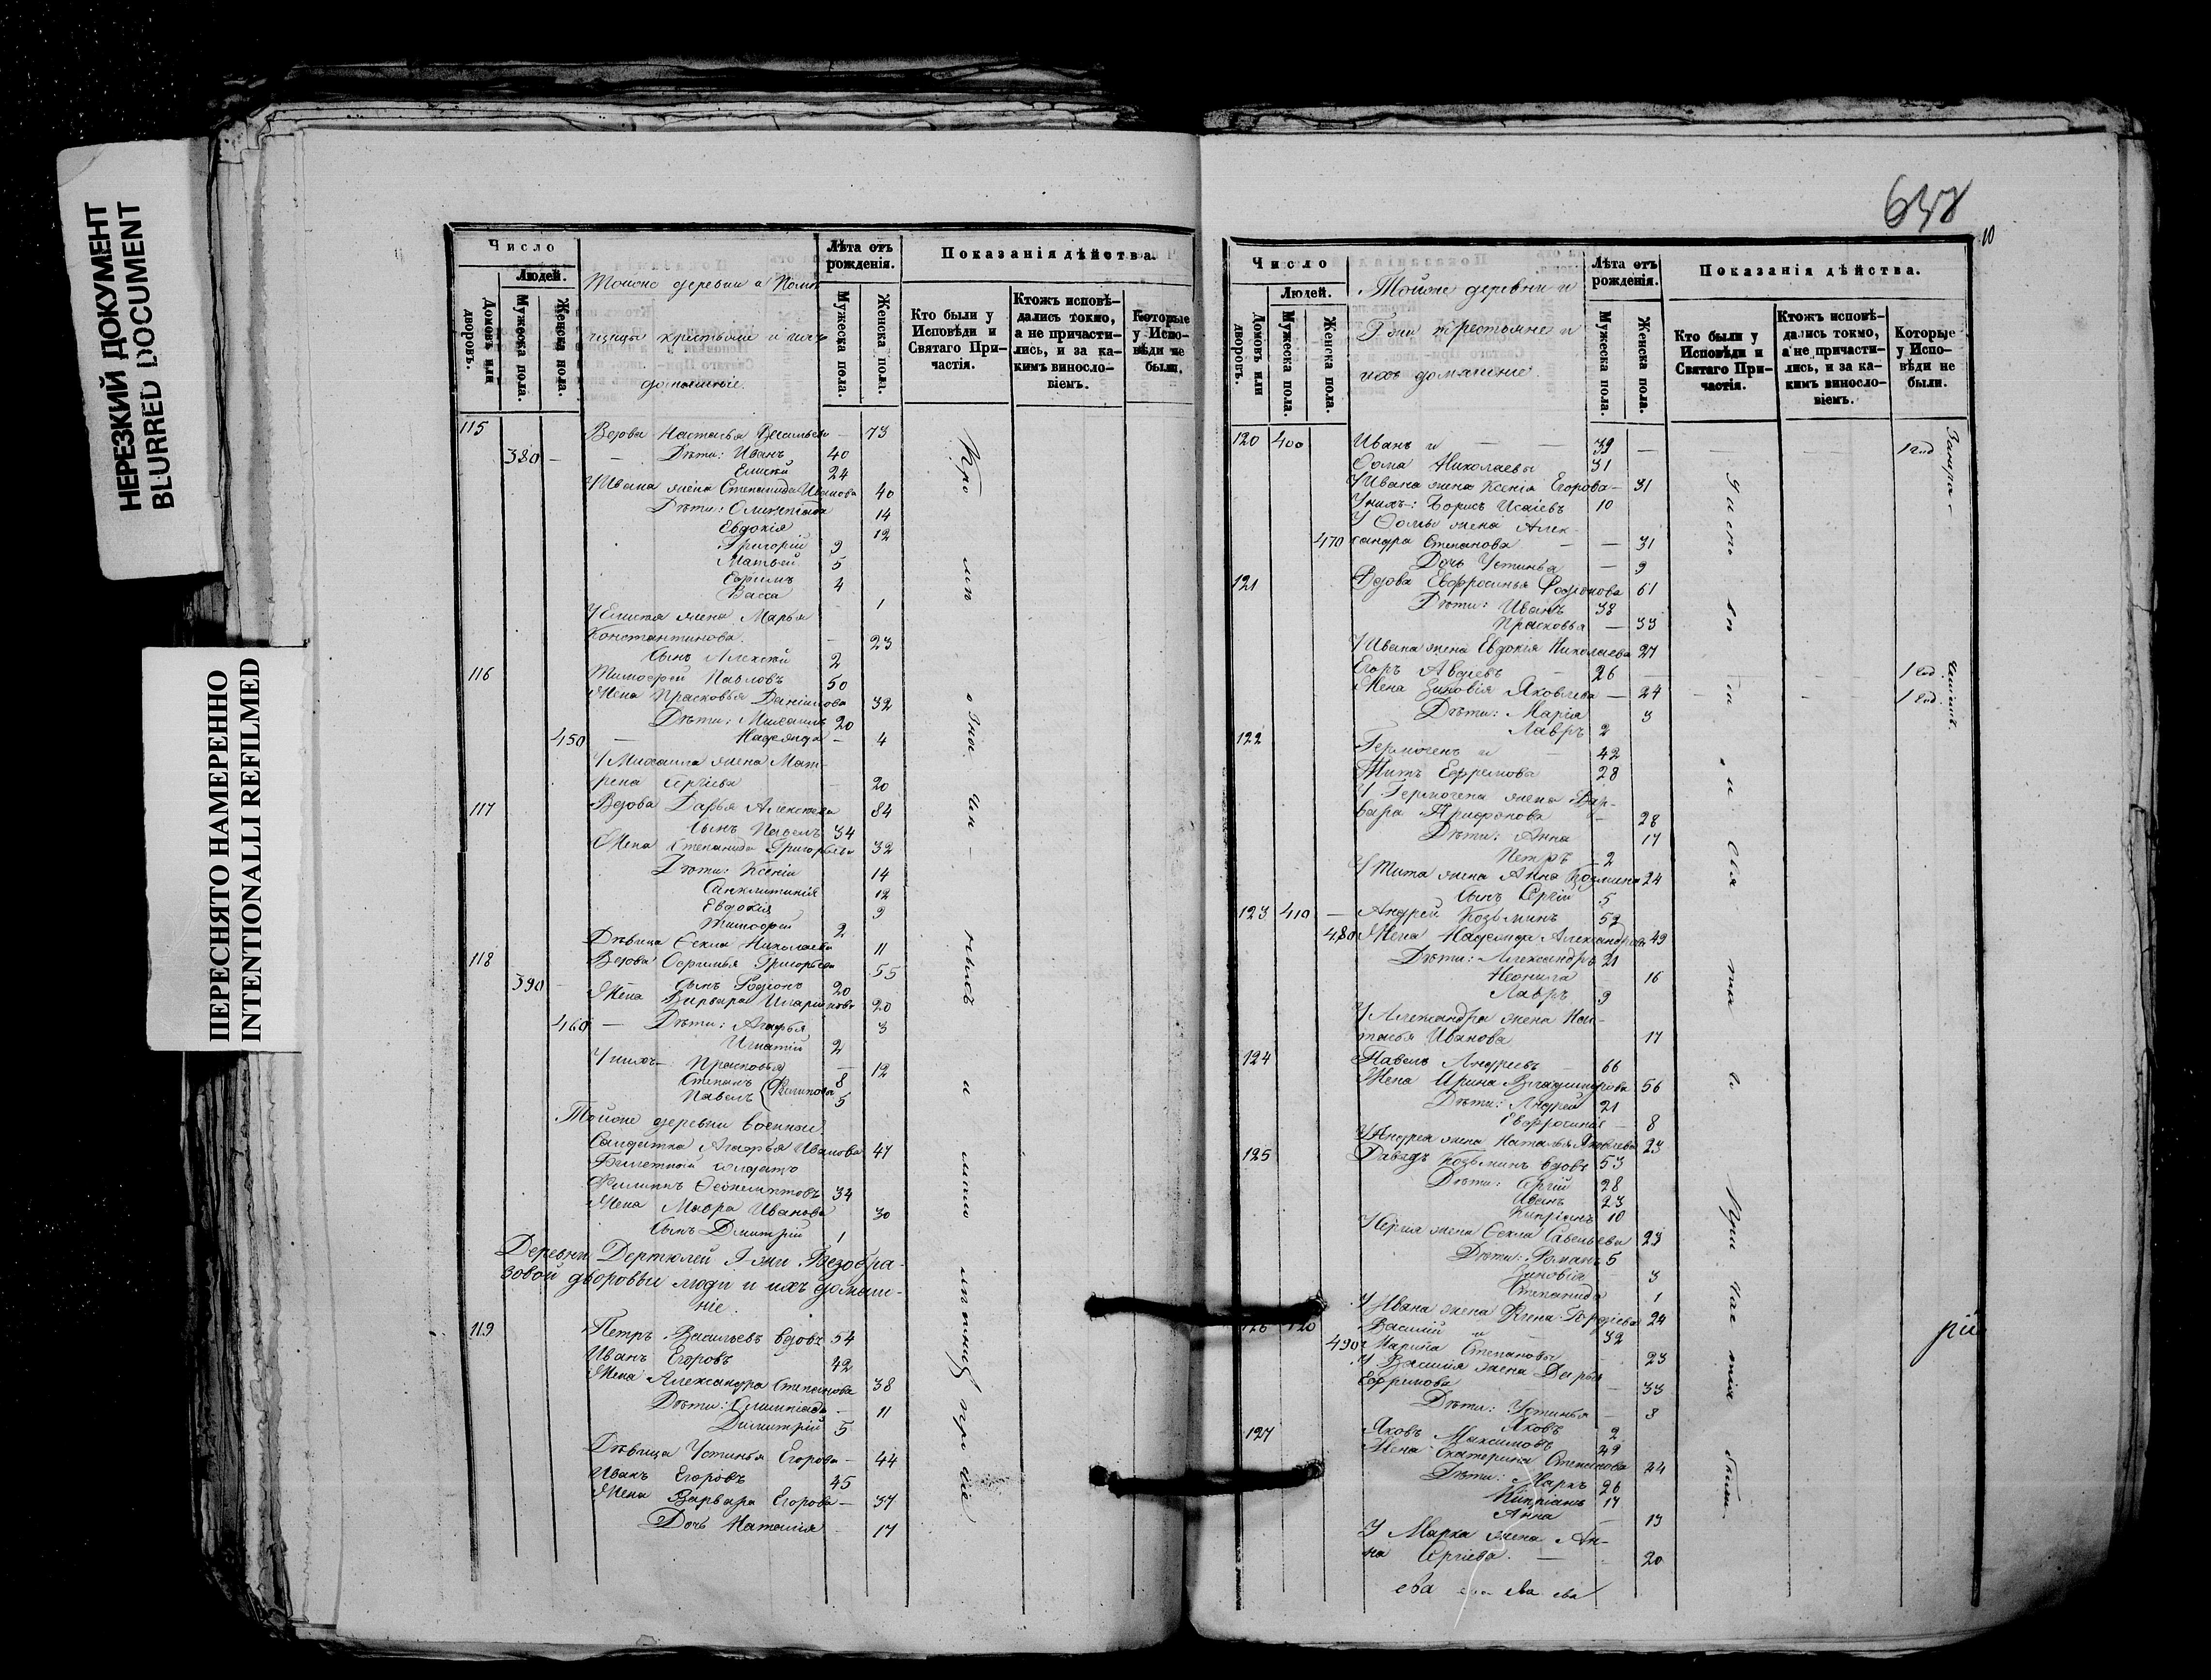 НЕРЕЗКИЙ ДОКУМЕНТ
BLURRED DOCUMENT
ПЕРЕСНЯТО НАМЕРЕННО
INTENTIONALLI REFILMED
Число
Людей.
Домовъ или дворовъ.
Мужеска пола.
Женска пола.
Тойже деревни
крестьяне и ихъ
домашніе.
Лѣта отъ рожденія.
Мужеска пола.
Женска пола.
Показанія дѣйства.
Кто были у Исповѣди и Святаго Причастія.
Ктожъ исповѣдались токмо, а не причастились, и за какимъ винословіемъ.
Которые у Исповѣди не были.
115 Вдова Настасья Васильева — 73
380 — — Дѣти: Иванъ 40
Елисѣй 24
У Ивана жена Степанида Иванова 40
Дѣти: Олимпіада 14
Евдокія 12
Григорій 9
Матвѣй 5
Ефимъ 4
Васса 1
У Елисея жена Марья
Константинова — 23
Сынъ Алексѣй 2
116 Тимофей Павловъ 50
Жена Прасковья Даніилова 32
Дѣти: Михаилъ 20
450 — Надежда — 4
У Михаила жена Мат-
рена Сергіева — 20
117 Вдова Дарья Алексѣева 84
Сынъ Павелъ 34
Жена Степанида Григорьева 32
Дѣти: Ксенія 14
Синклитикія 12
Евдокія 9
Тимофей 2
Дѣвица Фекла Николаева 11
118 Вдова Ефимья Григорьева 55
390 — Сынъ Родіонъ 20
Жена Варвара Иларіонова 20
460 — Дѣти: Агафья 3
Игнатій 2
У нихъ — Прасковья — 12
Степанъ 8
Павелъ Филиповы 5
Тойже деревни военный
Солдатка Агафья Иванова 47
Билетной солдатъ
Филиппъ 34
Жена Мавра Иванова 30
Сынъ Дмитрій 1
Деревни Дертюлей Г-жи Безобра-
зовой дворовые люди и ихъ домаш-
ніе.
119 Петръ Васильевъ вдовъ 54
Иванъ Егоровъ 42
Жена Александра Степанова 38
Дѣти: Олимпіада — 11
Димитрій 5
Дѣвица Устинья Егорова — 44
Иванъ Егоровъ 45
Жена Варвара Егорова — 37
Дочь Наталія — 17
638
10
Число
Людей.
Домовъ или дворовъ.
Мужеска пола.
Женска пола.
Тойже деревни и
Г-жи крестьяне и
ихъ домашніе.
Лѣта отъ рожденія.
Мужеска пола.
Женска пола.
Показанія дѣйства.
Кто были у Исповѣди и Святаго Причастія.
Ктожъ исповѣдались токмо, а не причастились, и за какимъ винословіемъ.
Которые у Исповѣди не были.
120 400 Иванъ и — — 39 — — — 1
Фома Николаевы 31
У Ивана жена Ксенія Егорова — 31
У нихъ: Борисъ Исаіевъ 10
У Фомы жена Алек-
470 сандра Степанова — — 31
Дочь Устинья — 9
121 Вдова Евфросинья Родіонова 61
Дѣти: Иванъ 38
Прасковья — 33
У Ивана жена Евдокія Николаева 27
Егоръ Авдеевъ 26 — 1
Жена Зиновія Яковлева — 24 — — 1
Дѣти: Марія 3
Лавръ 2
122 Гермогенъ и — 42
Титъ Ефремовы 28
У Гермогена жена Вар-
вара Трифонова — 28
Дѣти: Анна 17
Петръ — 2
У Тита жена Анна Козмина 24
Сынъ Сергій 5
123 410 — Андрей Козьминъ 52
480 Жена Надежда Александрова 49
Дѣти: Александръ 21
Неонила 16
Лавръ 9
У Александра жена Нас-
тасья Иванова 17
124 Павелъ Андреевъ — 66
Жена Ирина Владимирова 56
Дѣти: Андрей 21
Евфросинія — 8
У Андрея жена Наталья Яковлева 23
125 Давидъ Козьминъ вдовъ 53
Дѣти: Сергій 28
Иванъ 23
Кипріанъ 10
У Сергія жена Фекла Савельева 23
Дѣти: Романъ 5
Зиновія 3
Степанида 1
У Ивана жена Елена 24
126 420 Василій и — 32
490 Марина Степановы 23
У Василія жена Дарья
Ефимова — 33
Дѣти: Устинья — 8
Яковъ 2
127 Яковъ Максимовъ 49
Жена Екатерина Степанова 24
Дѣти: Маркъ 26
Кипріанъ 17
Анна — 13
У Марка жена Ан-
на Сергіева. — 20
ева ева ева ева